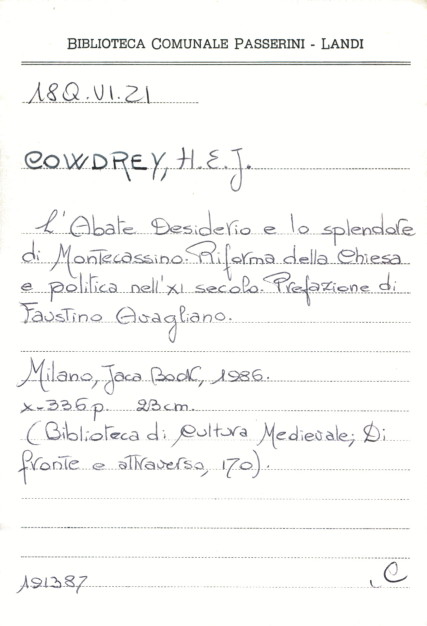 BIBLIOTECA COMUNALE PASSERINI - LANDI
18Q.VI.21
COWDREY, H.E.J.
L'Abate Desiderio e lo splendore
di Montecassino. Riforma della Chiesa
e politica nell'XI secolo. Prefazione di
Faustino Avagliano.
Milano, Jaca Book, 1986.
X-336 p. 23 cm.
(Biblioteca di Cultura Medievale; Di
fronte e attraverso, 170).
191387
C